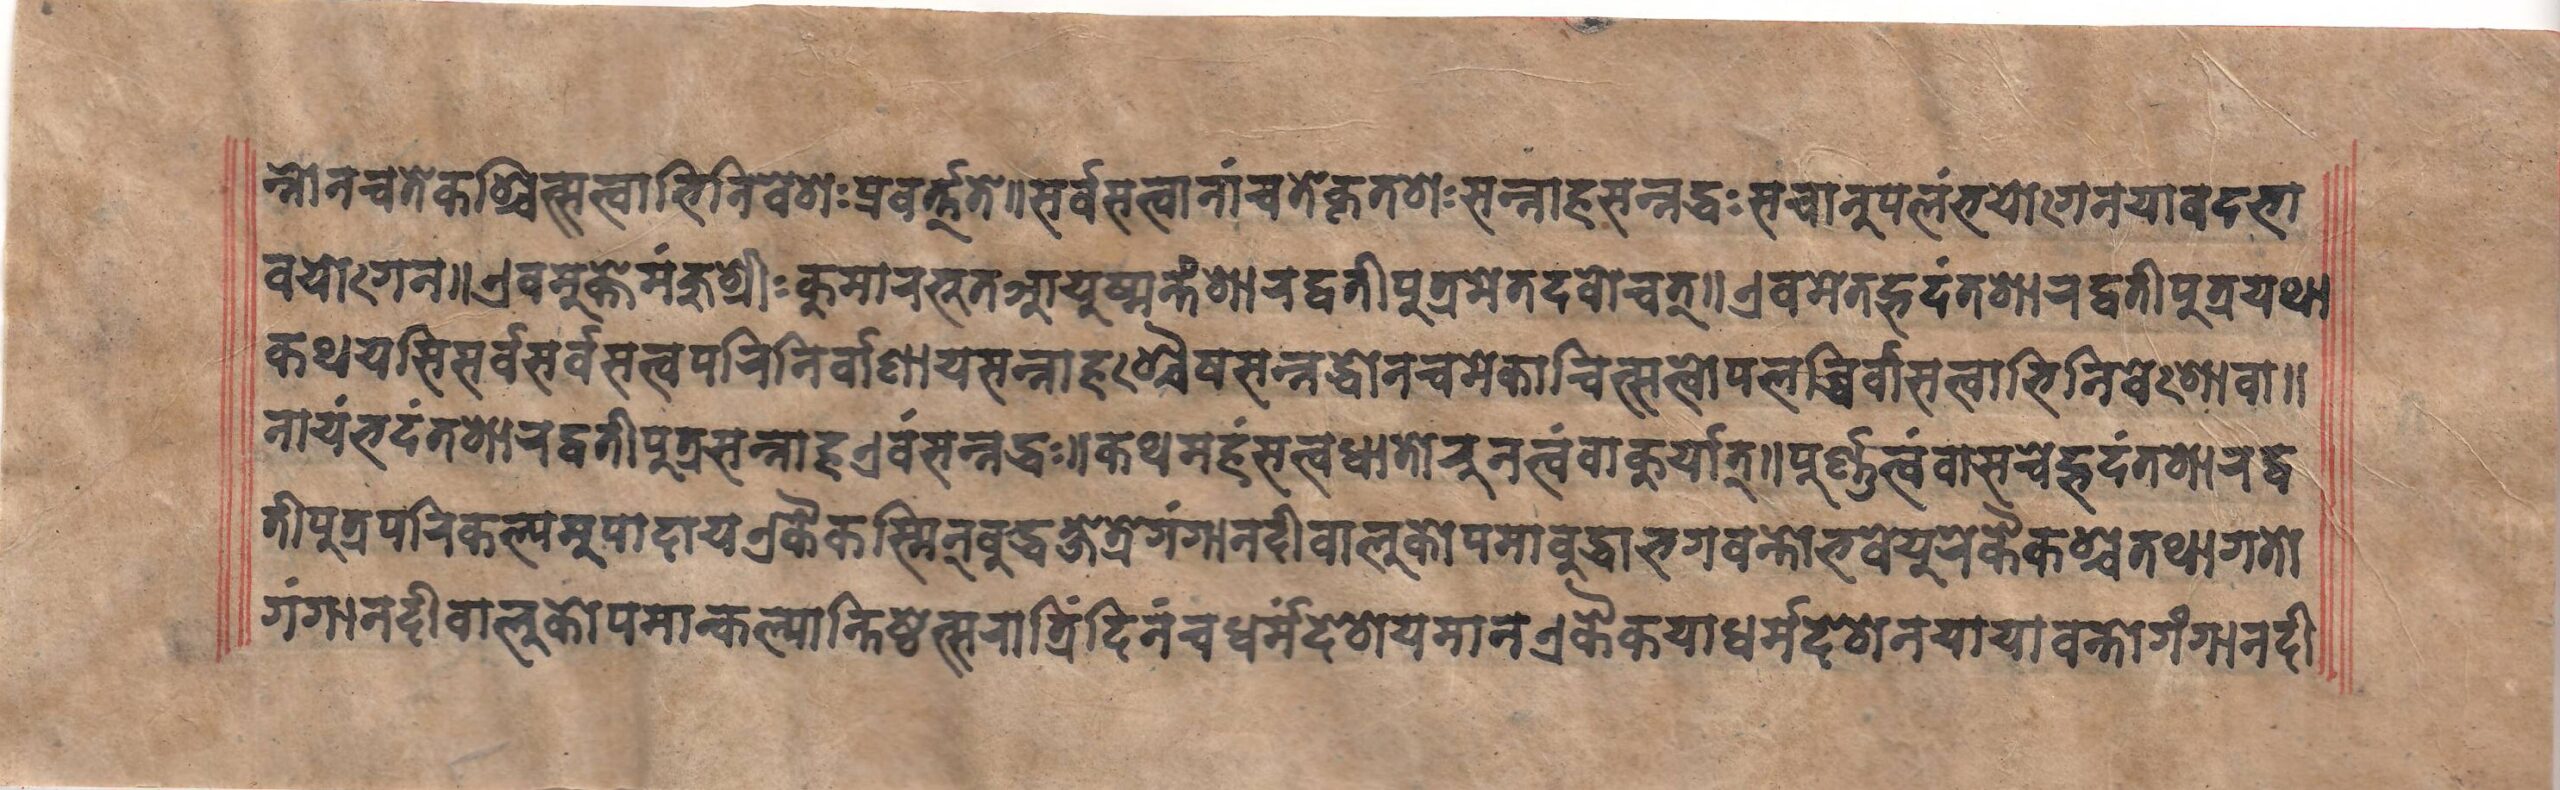 न्नो न च ते कश्चित्सत्वाभिनिवेशः प्रवर्त्तते॥ सर्वसत्वानां च ते कृतशः सन्नाहसन्नद्धः स चानुपलंभयोगेन यावदभा
वयोगेन॥ एवमुक्ते मंजुश्रीः कुमारभुत आयुष्मन्तं शारद्वतीपुत्रमेतदवोचत्॥ एवमेतद्भदंत शारद्वतीपुत्र यथा
कथयसि सर्व सर्वसत्वपरिनिर्वाणाय सन्नाह श्चैष सन्नद्धो न च मे काचित्सत्वोपलब्धिर्वा सत्वाभिनिवेशो वा॥
नायं भदंत शारद्वतीपुत्र सन्नाह एवं सन्नद्धः॥ कथमहं सत्वधातोरुनत्वं वा कुर्यात्॥ पुर्ण्णत्वं वा सचेद्भदंत शारद्व
तीपुत्र परिकल्पमुपादाय एकैकस्मिन् बुद्धक्षेत्रे गंगानदीवालुकोपमा बुद्धा भगवन्तो भवेयुरेकैकश्च तथागतो
गंगानदीवालुकोपमान्कल्पान्तिष्ठेत्सरात्रिंदिनं च धर्मं देशयमान एकैकया धर्मदेशनया यावन्तो गंगानदी